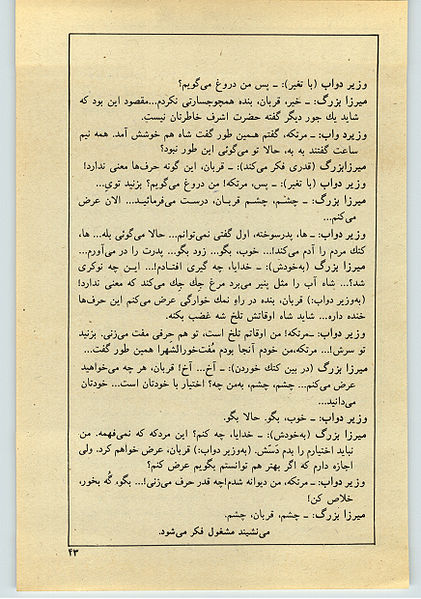 وزیر دواب (با تغیر): ــ پس من دروغ می‌گویم؟
میرزا بزرگ: ــ خیر، قربان، بنده همچوجسارتی نکردم...مقصود این بود که
شاید یك جور دیگر گفته حضرت اشرف خاطرتان نیست.
وزیرد واب: ــ مرتکه، گفتم همین طور گفت شاه هم خوشش آمد. همه نیم
ساعت گفتند به به، حالا تو می‌گوئی این طور نبود؟
میرزابزرگ (قدری فکر می‌کند): ــ قربان، این گونه حرف‌ها معنی ندارد!
وزیر دواب (با تغیر): ــ پس، مرتکه! من دروغ می‌گویم؟ بزنید توی...
میرزا بزرگ: ــ چشم، چشم قربان، درست می‌فرمائید... الان عرض
می‌کنم...
وزیر دواب: ــ ها، پدرسوخته، اول گفتی نمی‌توانم... حالا می‌گوئی بله... ها،
کتك مردم را آدم می‌کند!... خوب، بگو... زود بگو... پدرت را در می‌آورم...
میرزا بزرگ (به‌خودش): ــ خدایا، چه گیری افتادم!... این چه نوکری
شد؟... شاه آب را مثل پنیر می‌برد مرغ چك چك می‌کند که معنی ندارد!
(به‌وزیر دواب:) قربان، بنده در راه نمك خوارگی عرض می‌کنم این حرف‌ها
خنده داره... شاید شاه اوقاتش تلخ شه غضب بکنه.
وزیر دواب: ــمرتکه! من اوقاتم تلخ است، تو هم حرفی مفت می‌زنی. بزنید
تو سرش!... مرتکه،من خودم آنجا بودم مُفت‌خورالشهرا همین طور گفت...
میرزا بزرگ (در بین کتك خوردن): ــ آخ... آخ! قربان، هر چه می‌خواهید
عرض می‌کنم... چشم، چشم، به‌من چه؟ اختیار با خودتان است... خودتان
می‌دانید...
وزیر دواب: ــ خوب، بگو. حالا بگو.
میرزا بزرگ (به‌خودش): ــ خدایا، چه کنم؟ این مردکه که نمی‌فهمه. من
نباید اختیارم را بدم دَستش. (به‌وزیر دواب:) قربان، عرض خواهم کرد. ولی
اجازه دارم که اگر بهتر هم توانستم بگویم عرض کنم؟
وزیر دواب: ــ مرتکه، من دیوانه شدم!چه قدر حرف می‌زنی!... بگو، گُه بخور،
خلاص کن!
میرزا بزرگ: ــ چشم، قربان، چشم.
می‌نشیند مشغول فکر می‌شود.
۴۳